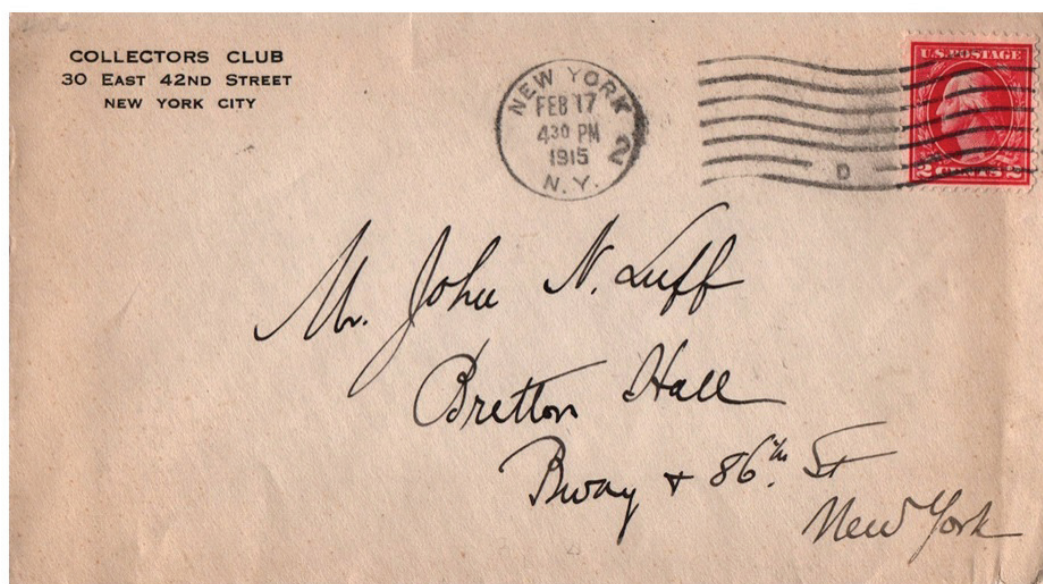 COLLECTORS CLUB
30 EAST 42ND STREET
NEW YORK CITY
NEW YORK
FEB 17
4 30 PM
1915
N.Y.
2
D
U.S. POSTAGE
2 CENTS 2
Mr. John N. Luff
Bretton Hall
Bway + 86th St
New York